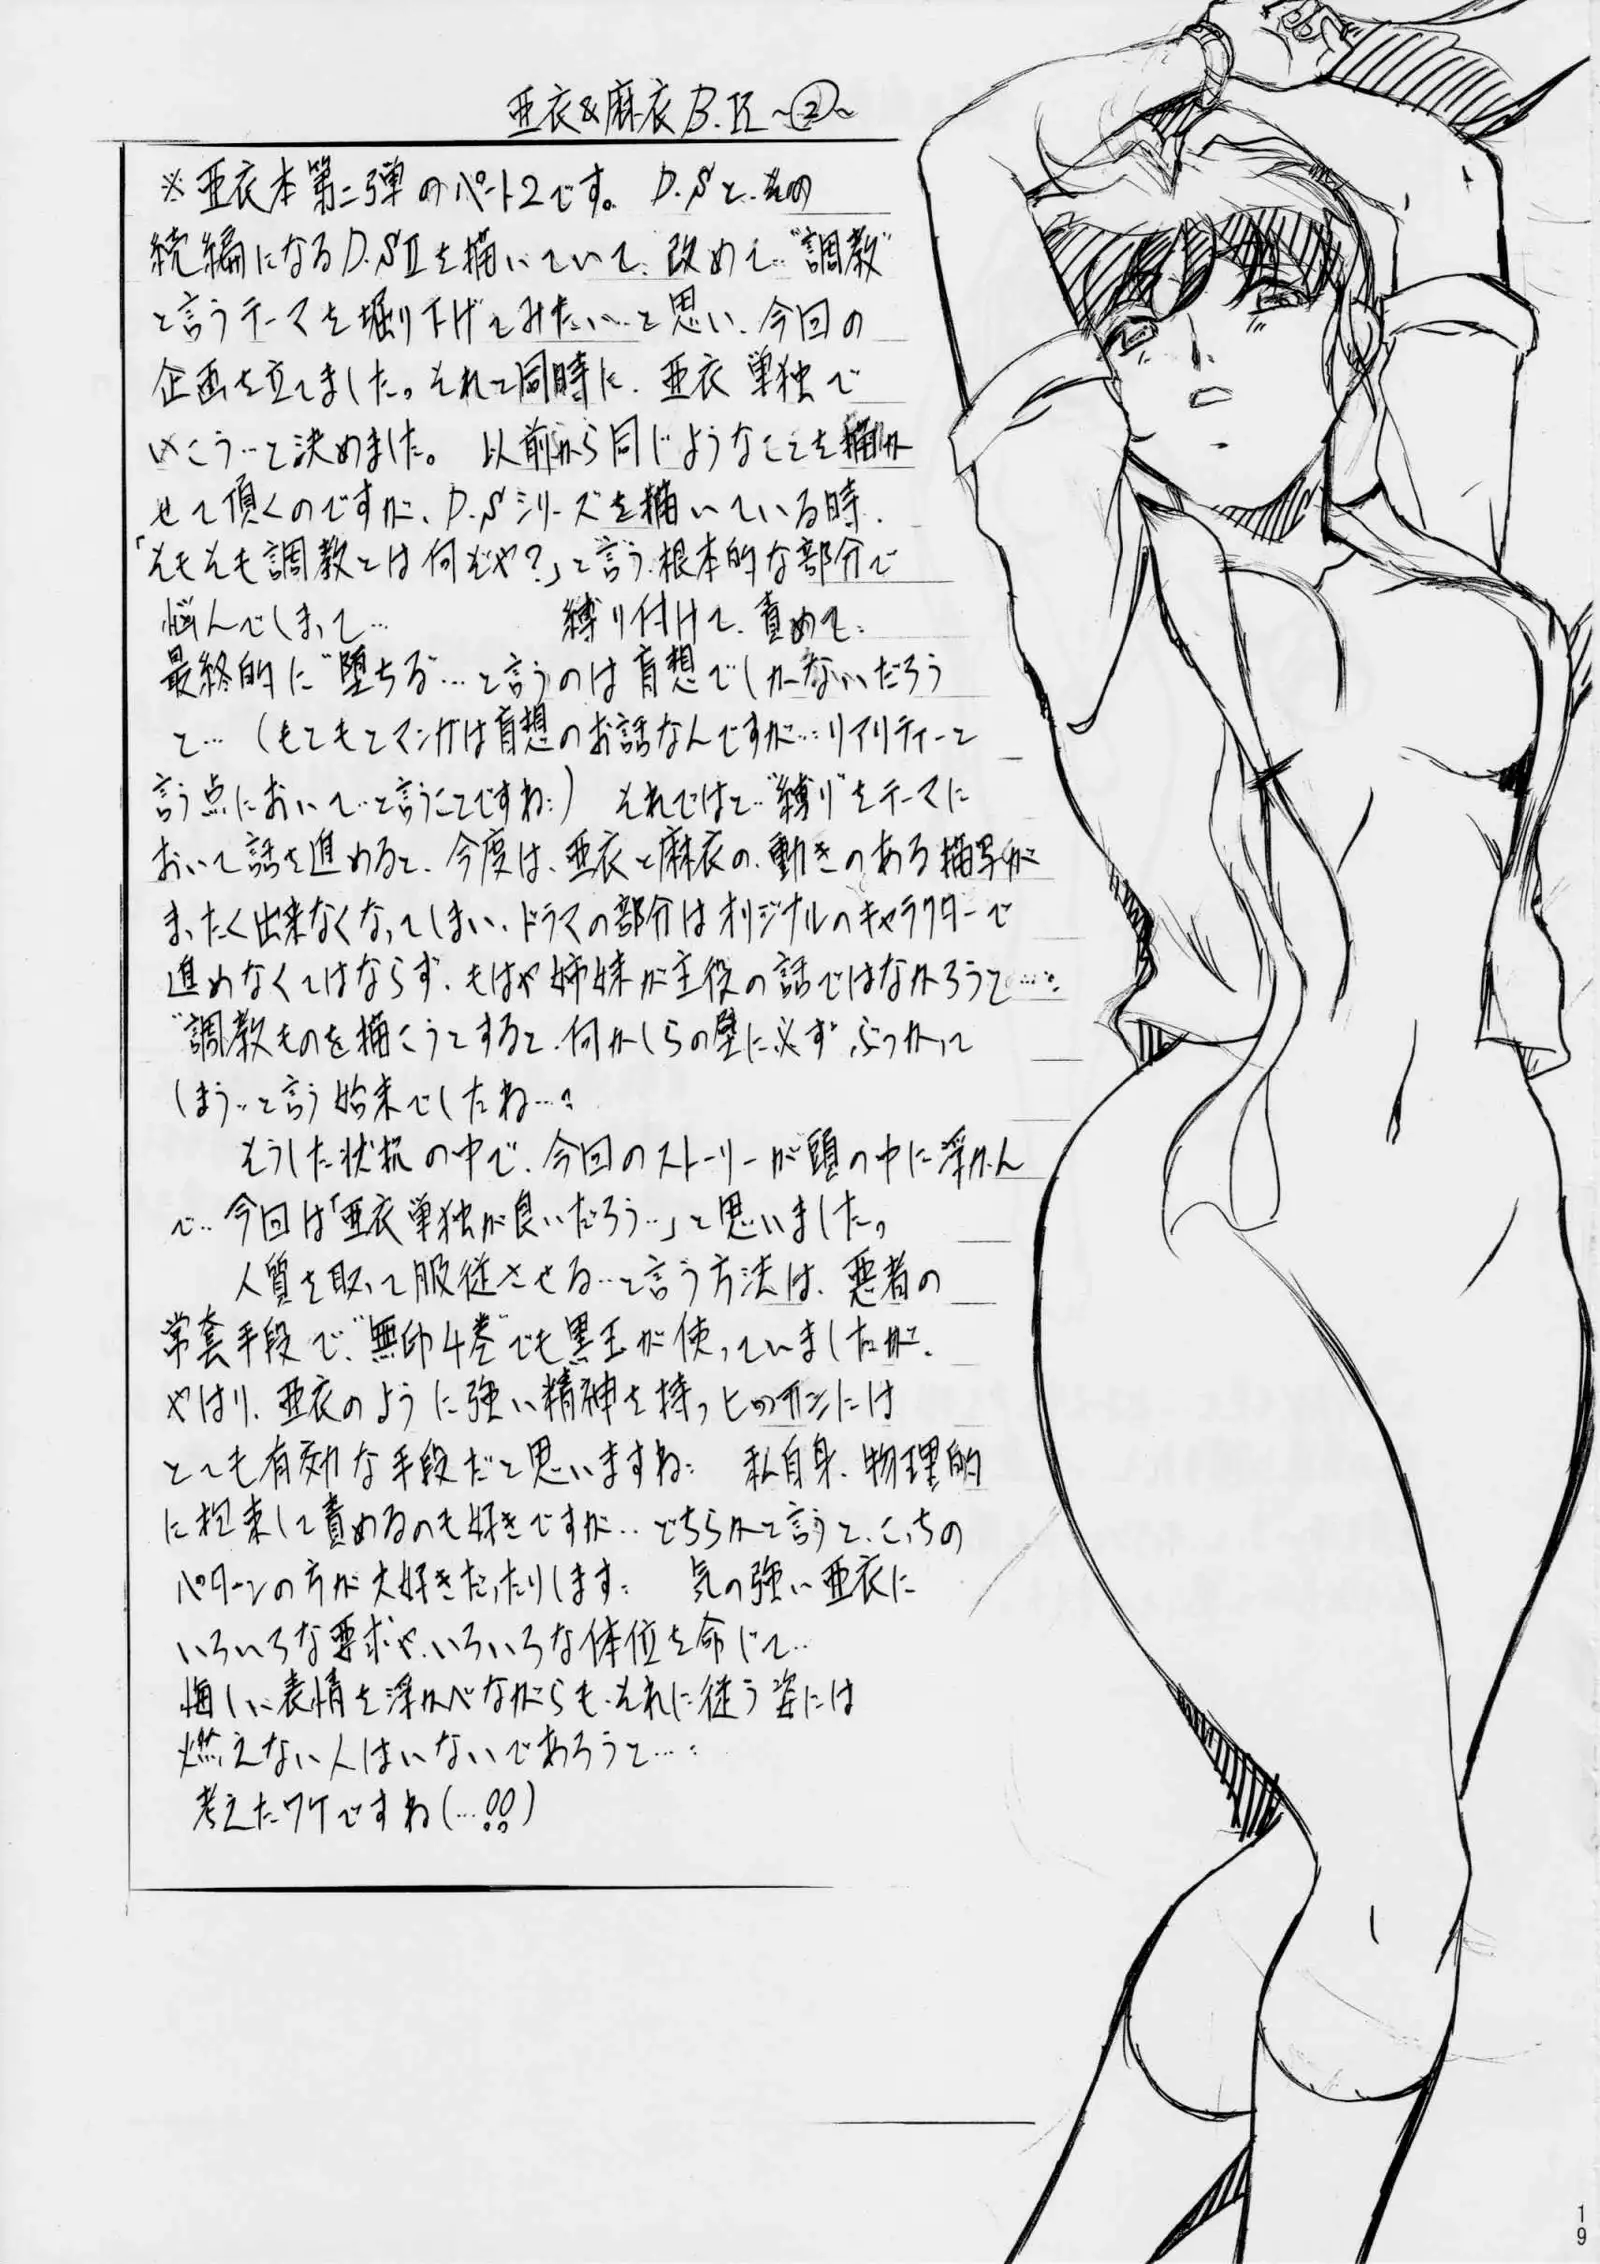 亜衣&麻衣 B.R ~②~
※亜衣本第二弾のパート2です。 D.Sと、その
続編になるD.SⅡを描いていて、改めて…"調教"
と言うテーマを堀り下げてみたい…と思い、今回の
企画を立てました。それと同時に、亜衣単独で
いこう…と決めました。 以前から同じようなことを描か
せて頂くのですが、D.Sシリーズを描いている時、
「そもそも調教とは何ぞや?」と言う、根本的な部分で
悩んでしまって… 縛り付けて、責めて…
最終的に"堕ちる"…と言うのは盲想でしかないだろう
と… (もともとマンガは盲想のお話なんですが…リアリティーと
言う点において…と言うことですね…) それではと…"縛り"をテーマに
おいて話を進めると、今度は、亜衣と麻衣の、動きのある描写が
まったく出来なくなってしまい、ドラマの部分はオリジナルのキャラクターで
進めなくてはならず、もはや姉妹が主役の話ではなかろうと…
"調教ものを描こうとすると、何かしらの壁に必ずぶつかって
しまう…と言う始末でしたね…
そうした状況の中で、今回のストーリーが頭の中に浮かん
で…今回は「亜衣単独が良いだろう…」と思いました。
人質を取って服従させる…と言う方法は、悪者の
常套手段で、"無印4巻"でも黒玉が使っていましたが、
やはり、亜衣のように強い精神を持つヒロインには
とても有効な手段だと思いますね… 私自身、物理的
に拘束して責めるのも好きですが…どちらかと言うと、こっちの
パターンの方が大好きだったりします… 気の強い亜衣に
いろいろな要求や、いろいろな体位を命じて…
悔しい表情を浮かべながらも、それに従う姿には
燃えない人はいないであろうと…
考えたワケですね(…!!)
19